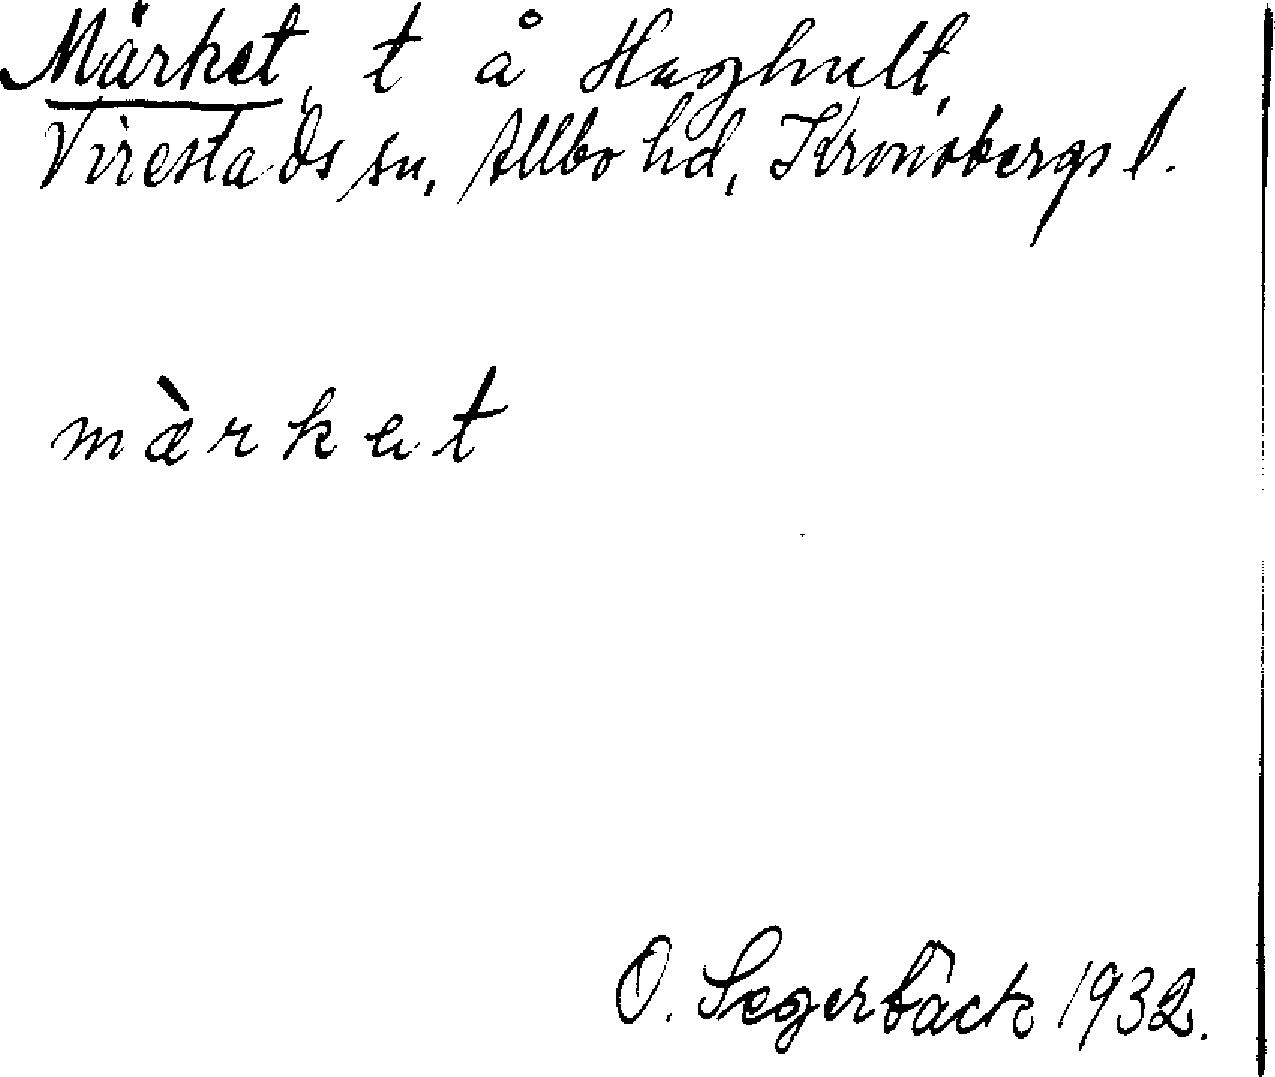 Märket, t å Haghult,
Virestads sn, Allbo hd, Kronobergs l.
mæ̀rket
O. Segerbäck 1932.